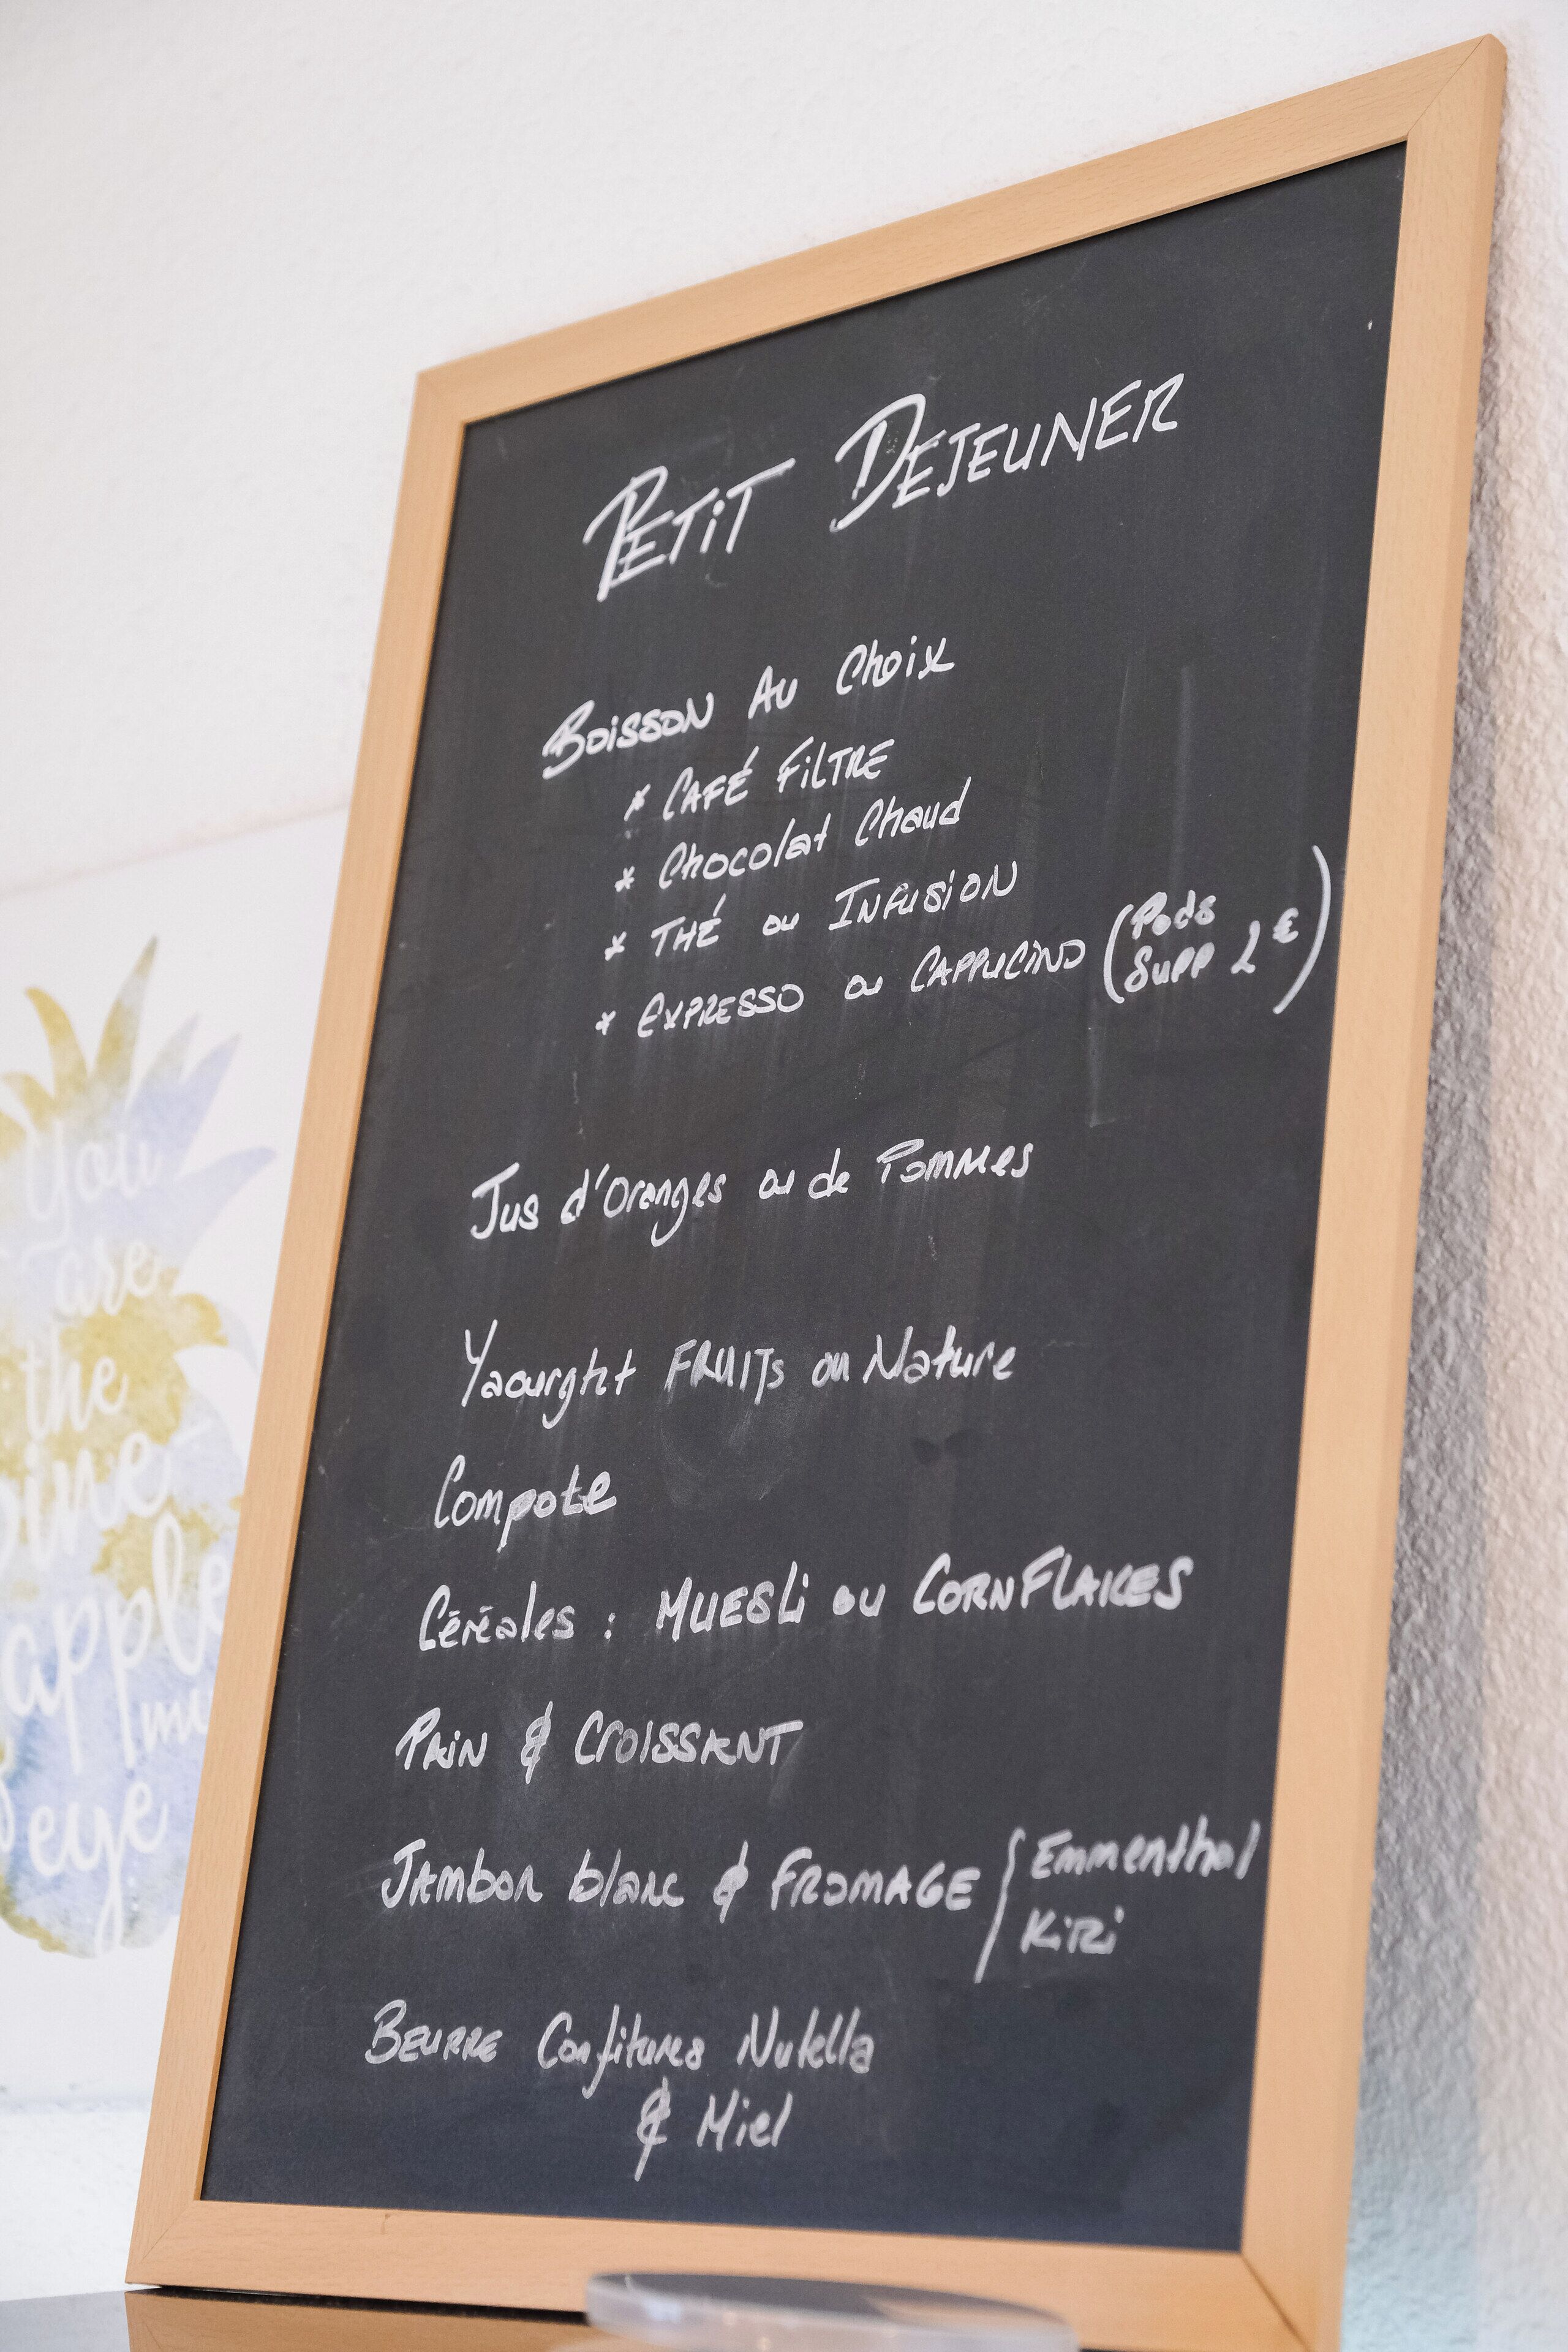 PETIT DEJEUNER
BOISSON AU Choix
* CAFÉ FILTRE
* Chocolat Chaud
* THÉ ou INFUSION
* EXPRESSO ou CAPPUCINO (Pods
Supp 2 €)
Jus d'Oranges ou de Pommes
Yaourght FRUITs ou Nature
Compote
Céréales : MUESLi ou CORNFLAKES
PAIN & CROISSANT
JAmbon blanc & FROMAGE { Emmenthal
KiRi
BEURRE Confitures Nutella
& Miel
You
are
the
pine
apple
of my
eye